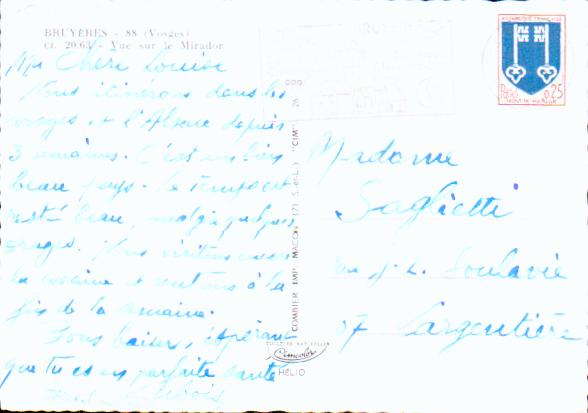 BRUYÈRES - 88 (Vosges)
CI. 20.63 - Vue sur le Mirador
Ma Chère Louise
Nous itinérons dans les
Vosges et l'Alsace depuis
3 semaines. C'est un bien
beau pays. Le temps est
resté beau, malgré quelques
orages. Nous visitons encore
la et rentrons à la
fin de la semaine.
Tous baiser, espérant
que tu es en parfaite santé
Dubois
COMBIER IMP. MACON (71 S.-et-L.) "CIM"
Cimcolor
HELIO
REPUBLIQUE FRANÇAISE
Postes 0,25
MONT-DE-MARSAN
BRUYERES
Madame
Saglietti
rue J. L. Soulavie
07 Largentière